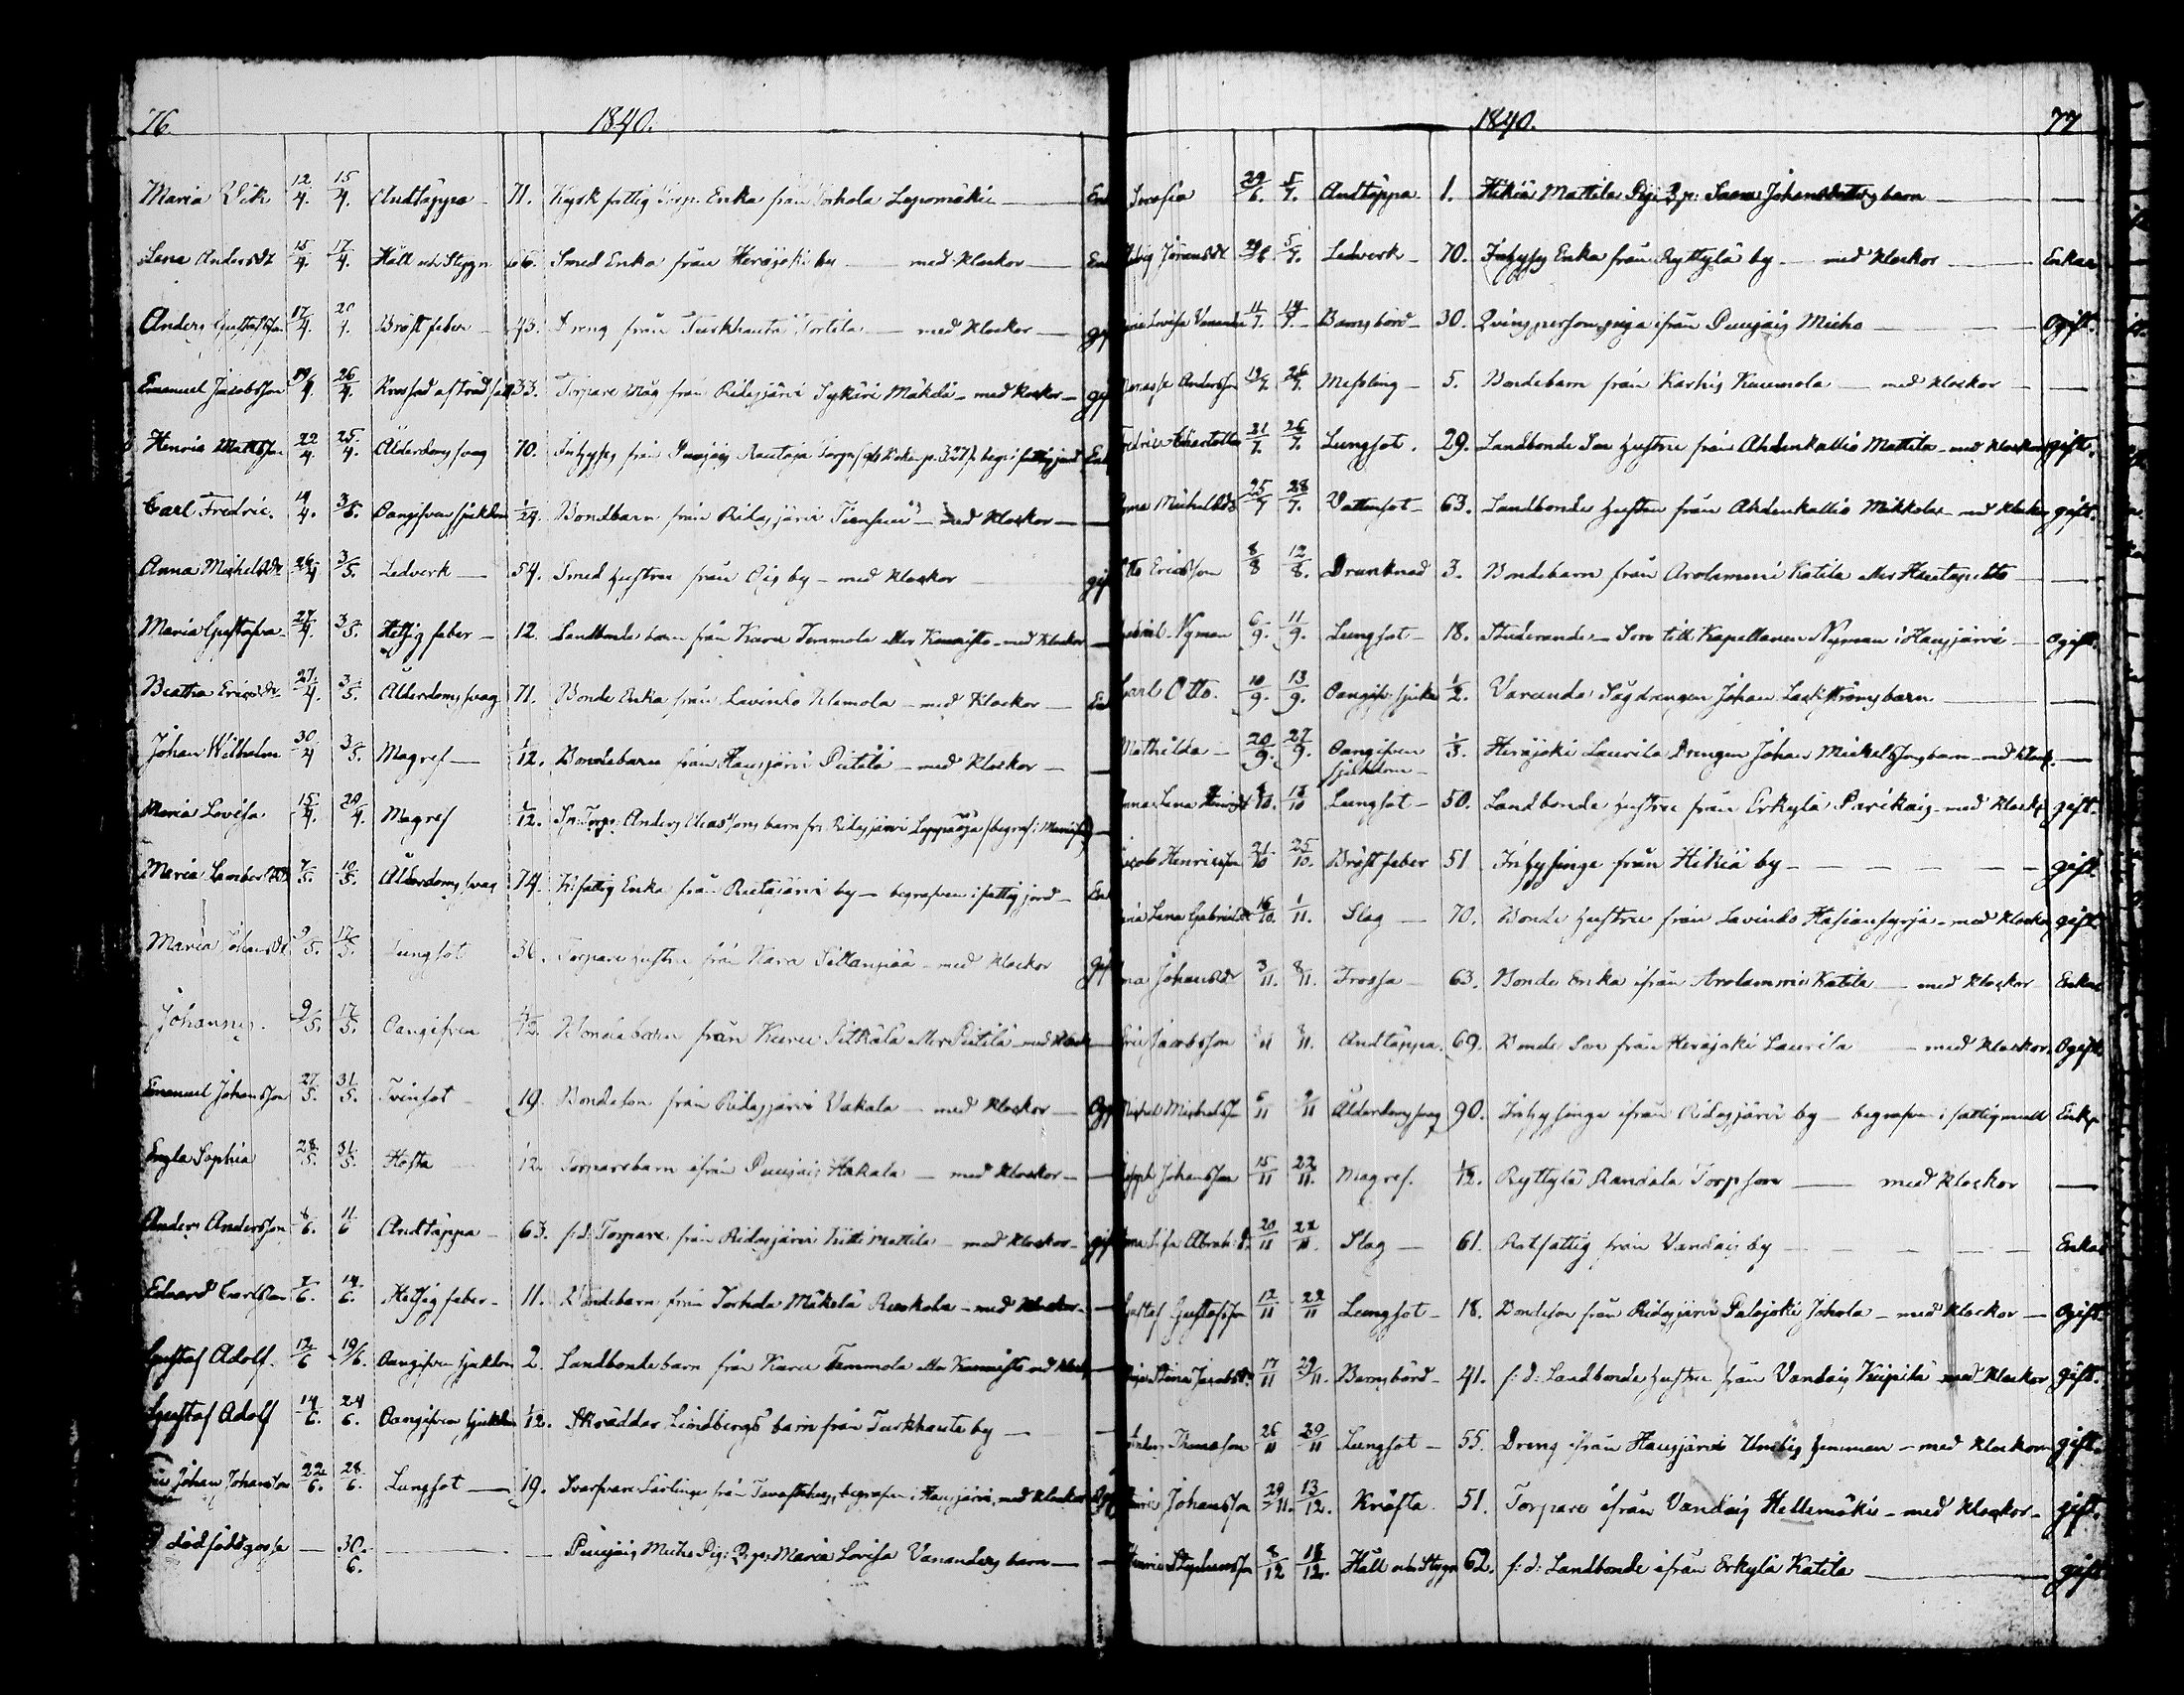 76. 1840.
Maria Wik 12/4. 15/4. Andtäppa 71. Kyrk fattig Enka från Torhola Lepomäki
Lena Andersdr 15/4. 17/4. Håll och Stygn 66. Smed Enka från Herajoki by med Klockor
Anders Gustafsson 17/4. Bröstfeber 43. Dreng från Turkhauta Tortila med Klockor
Emanuel Jacobsson 19/4. 26/4. 33. Torpare Måg från Ridasjärvi Sykäri Mäkelä med Klockor
Henric Mattsson 22/4 25/4. Ålderdoms svag 70. Inhyses från Puujais Rautoja
Carl Fredric. 19/4. 3/5. Oangifven sjukdom 1/24. Bondbarn från Ridasjärvi med Klockor
Anna Michelsdr 26/4 3/5. Ledverk 54. Smed hustru från Ois by med Klockor
Maria Gustafva 27/4. 3/5. Hetsig feber 12. Landbonde barn från Karu Temmola eller Kannisto med Klockor
Beatha Ericsdr. 27/4. 3/5. Ålderdoms svag 71. Bonde Enka från Lavinto Klemola med Klockor
Johan Wilhelm 30/4 3/5. Magref 1/12. Bondebarn från Hausjärvi Pietilä med Klockor
Maria Lovisa 15/4. 20/4. Magref 1/12. Anders Eliassons barn fr: Ridasjärvi Leppäoja
Maria Lambertsdr 7/5. 10/5. Ålderdoms svag 74. fattig Enka från by begrafven i fattig jord
Maria Johansdr 9/5. 17/5. Lungsot 36. Torpare hustru från Kara Sillanpää med Klockor
Johannes. 9/5. 17/5. Oangifven 1/12. Bondebarn från Karu Pitkälä eller Pietilä med Klockor
Emanuel Johansson 27/5. 31/5. Tvinsot 19. Bondeson från Ridasjärvi Vakala med Klockor
Engla Sophia 28/5. 31/5. Hosta 12. Torparebarn ifrån Puujais Hakala med Klockor
Anders Andersson 8/6. 11/6 Andtäppa 63. f:d: Torpare från Ridasjärvi Mattila med Klockor
Eduard Carlsson 7/6. 14/6. Hetsig feber 11. Bondebarn från Torhola Mäkelä Ruskola med Klockor
Gustaf Adolf. 12/6 19/6. Oangifven Sjukdom 2. Landbonde barn från Karu Temmola eller Kannisto med Klockor
Gustaf Adolf 14/6. 24/6. Oangifven Sjukdom 1/12. Skräddar Lindbergs barn från Turkhauta by
Johan Johansson 22/6. 28/6. Lungsot 19. Svarfvare Lärlinge från Tavastehus, begrafven i Hausjärvi, med Klockor
dödföddgosse 30/6. Puujais Micko Pig: Maria Lovisa Vananders barn
1840. 77
Sofia 29/6. 5/7. Andtäppa 1. Hikiä Mattila Saara Johansdotters barn
Göransdr 29/6. 5/7. Ledverk 70. Inhyses Enka från Ryttylä by med Klockor Enka
Lovisa Vanander 11/7. 14/7. Barnsbörd 30. Qvinsperson piga ifrån Puujais Micko Ogift.
Andersson 19/7. 26/7. Messling 5. Bondebarn från Karhis Kuumola med Klockor
Fredrica Charlotta 21/7. 26/7. Lungsot. 29. Landbonde Son hustru från Ahdenkallio Mattila med Klockor gift.
Anna Michelsdr 25/7 28/7. Vattensot 63. Landbonde hustru från Ahdenkallio Mikkola med Klockor gift.
Otto Ericsson 8/8 12/8. Drunknad 3. Bondebarn från Arolammi Katila eller Hautapelto
Gabriel Nyman 6/9. 11/9. Lungsot 18. Studerande Son till Kapellanen Nyman i Hausjärvi Ogift.
Carl Otto. 10/9. 13/9. Oangifv: sjukd 1/2. Varunda Sågdrengen Johan barn
Mathilda 20/9. 27/9. Oangifven sjukdom 1/3. Herajoki Laurila Drengen Johan Michelssons barn med Klock.
Anna Lena 13/10 Lungsot 50. Landbonde hustru från Erkylä Parikais med Klockor gift.
Jacob Henricsson 21/10 25/10. Bröstfeber 51 Inhysinge från Hikiä by gift.
Lena Gabrielsdr 16/10. 1/11. Slag 70. Bonde hustru från Lavinto med Klockor gift
Johansdr 3/11. 8/11. Frossa 63. Bonde Enka ifrån Arolammi Katila med Klockor Enka
Eric Jacobsson 8/11. Andtäppa. 69. Bonde Son från Herajoki Laurila med Klockor Ogift
Michel Michelsson 6/11 9/11 Ålderdoms svag 90. Inhysinge ifrån Ridasjärvi by begrafven i fattigmull Enkl.
Joseph Johansson 15/11 22/11. Magref. 1/12. Ryttylä Randala Torpson med Klockor
Lisa Abrah: d. 20/11 22/11. Slag 61. Rotfattig från Vandais by Enka
Gustaf Gustafsson 12/11 22/11 Lungsot 18. Bondeson från Ridasjärvi Palojoki Johola med Klockor Ogift.
Stina Jacobsdr. 17/11 29/11. Barnsbörd 41. f:d: Landbonde hustru från Vandais Kiipilä med Klockor gift.
Anders Thomasson 26/11 29/11 Lungsot 55. Dreng från Hausjärvi Unkis hemman med Klockor gift.
Henric Johansson 29/11. 13/12. Kräfta 51. Torpare ifrån Vandais Hellemäki med Klockor gift.
Henric Stephansson 8/12 18/12. Håll och Stygn 62. f:d: Landbonde ifrån Erkylä Katila gift